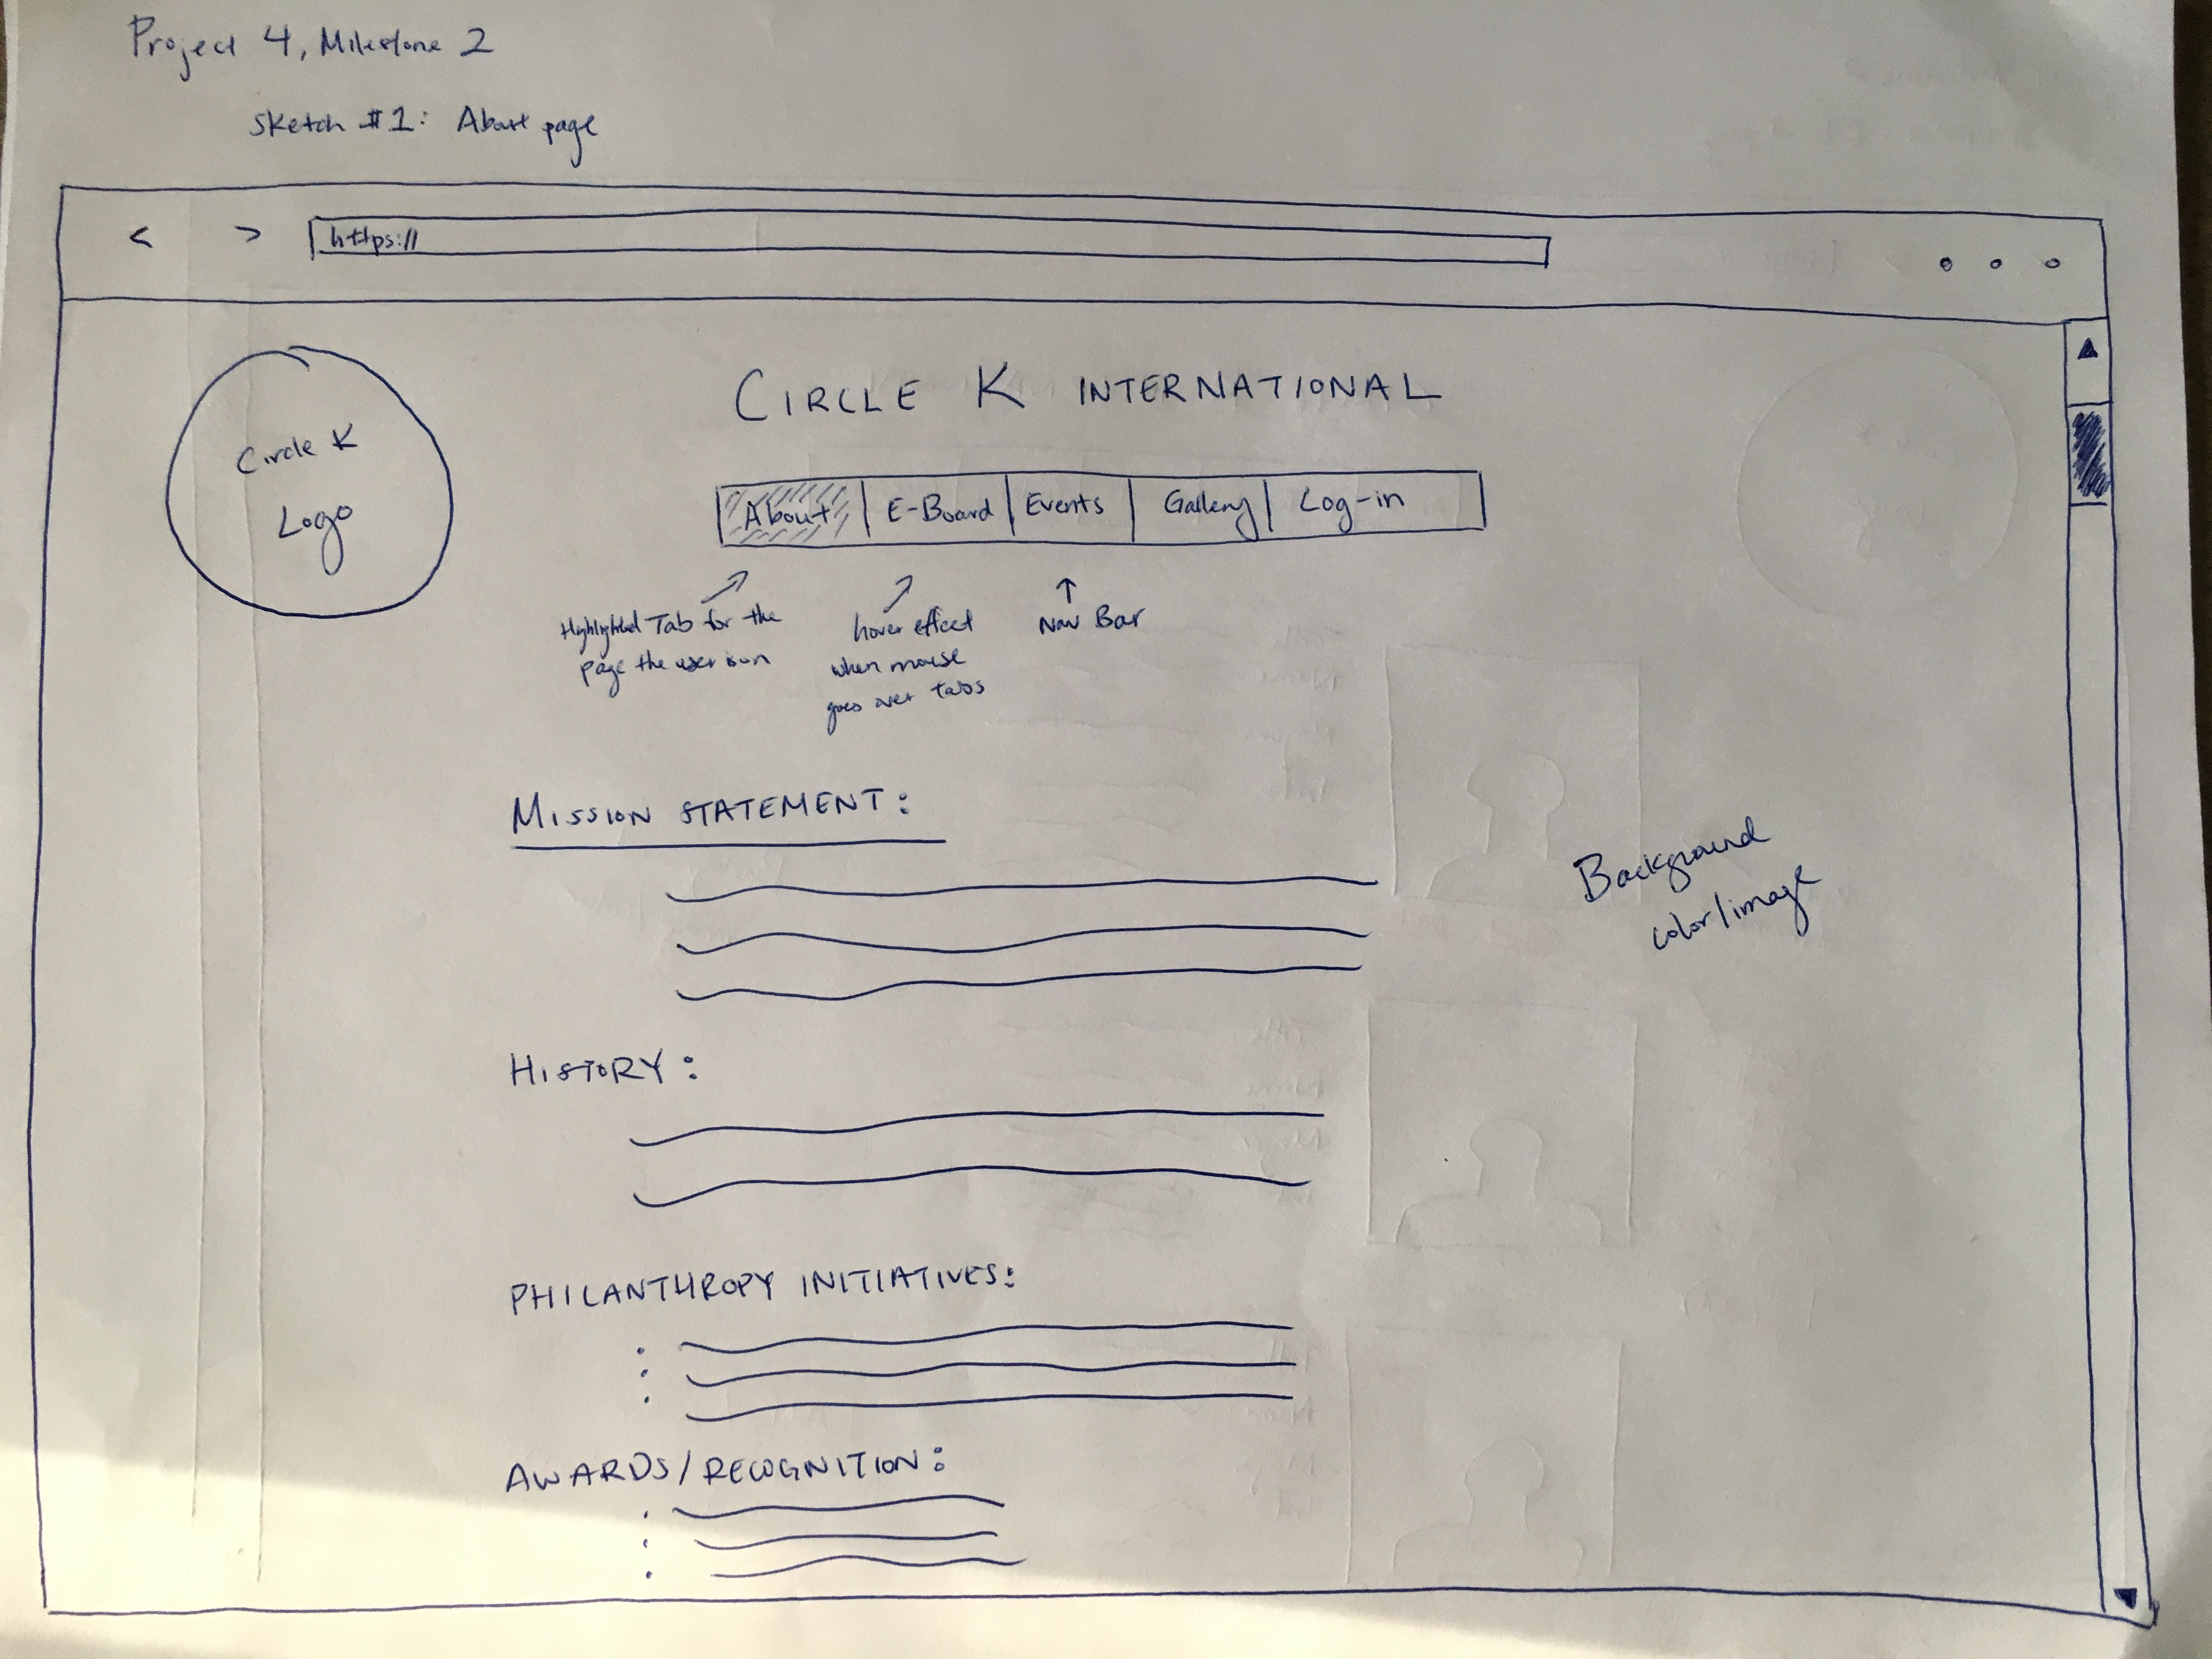 Project 4, Milestone 2
Sketch #1: About page
< >
https://
Circle K
Logo
CIRCLE K INTERNATIONAL
About E-Board Events Gallery Log-in
Highlighted Tab for the
page the user is on
hover effect
when mouse
goes over tabs
Nav Bar
MISSION STATEMENT:
Background
color/image
HISTORY:
PHILANTHROPY INITIATIVES:
AWARDS/RECOGNITION: